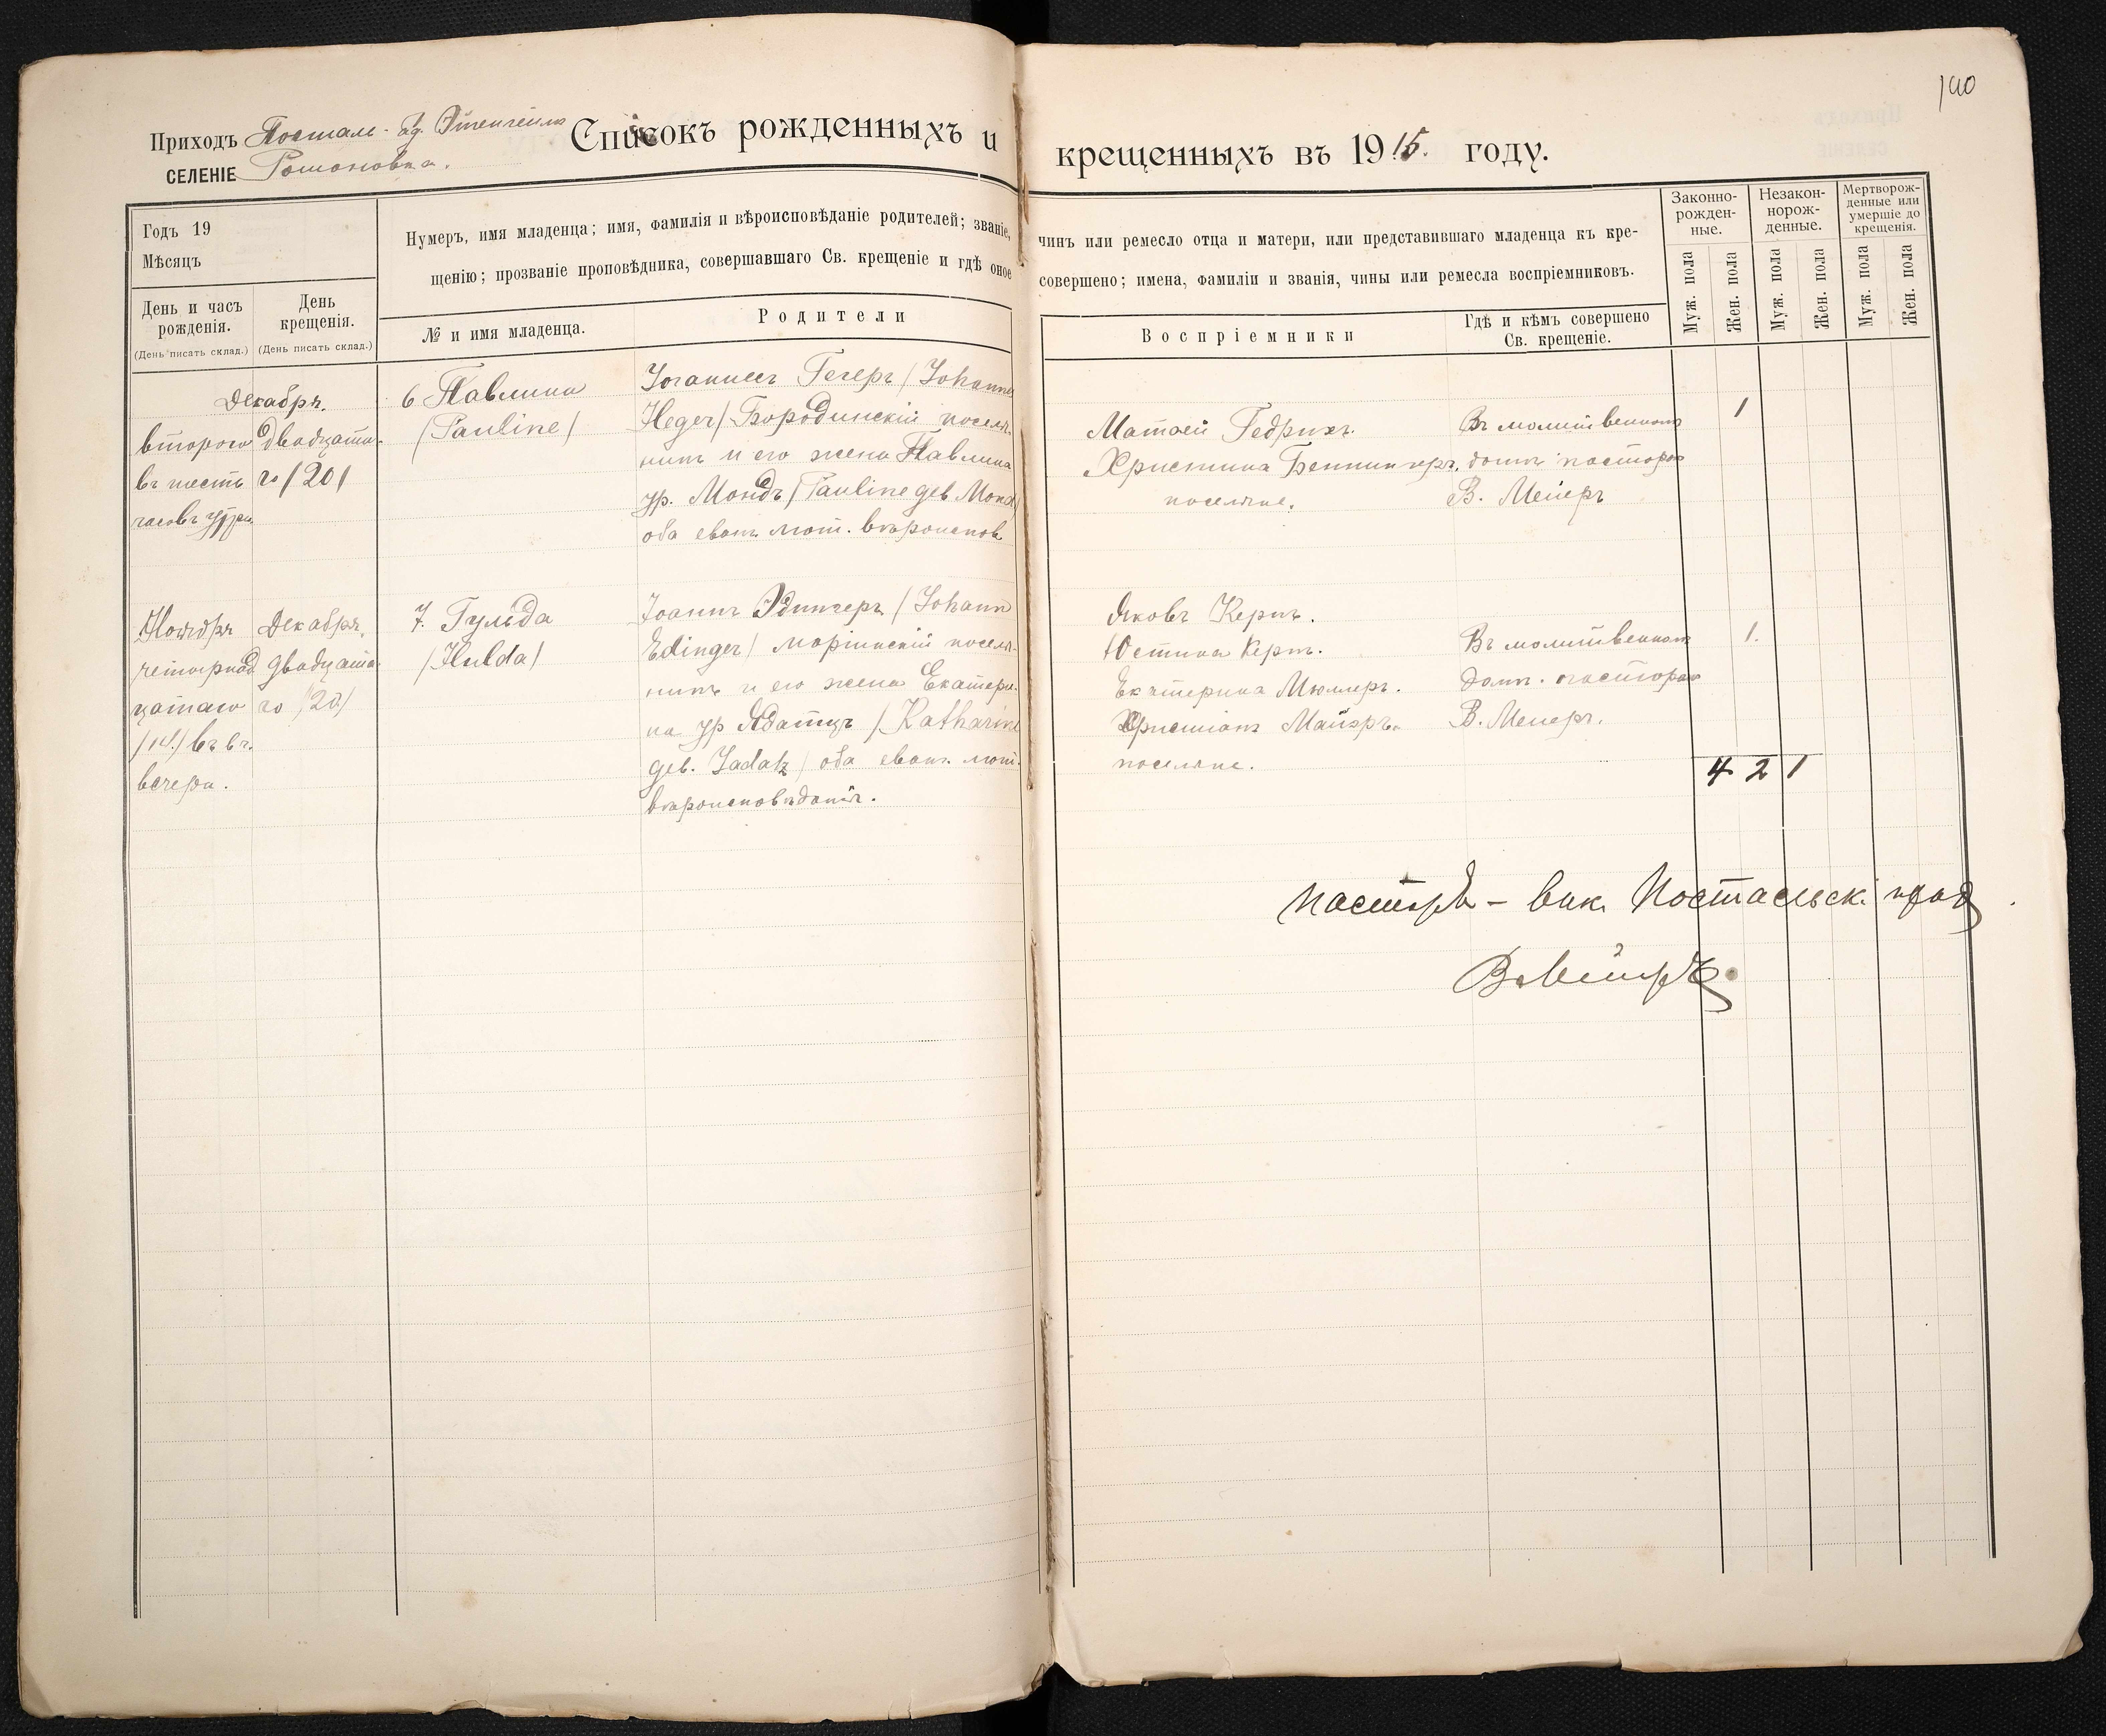 140
Приходъ Посталь-
СЕЛЕНІЕ Романовка.
Списокъ рожденныхъ и крещенныхъ въ 1915. году.
Годъ 19
Мѣсяцъ
День и часъ рожденія.
(День писать склад.)
День крещенія.
(День писать склад.)
Нумеръ, имя младенца; имя, фамилія и вѣроисповѣданіе родителей; званіе, чинъ или ремесло отца и матери, или представившаго младенца къ кре-
щенію; прозваніе проповѣдника, совершавшаго Св. крещеніе и гдѣ оное совершено; имена, фамиліи и званія, чины или ремесла воспріемниковъ.
№ и имя младенца.
Родители
Воспріемники
Гдѣ и кѣмъ совершено
Св. крещеніе.
Законно-
рожден-
ные.
Незакон-
норож-
денные.
Мертворож-
денные или
умершіе до
крещенія.
Муж. пола
Жен. пола
Муж. пола
Жен. пола
Муж. пола
Жен. пола
Декабря.
второго
въ шесть
часовъ утра
двадцата-
го /20/
6 Павлина
/Pauline/
Іоганнесъ Гегеръ /Johannes
Heger/ Бородинскій поселя-
нинъ и его жена Павлина
ур. Мондъ /Pauline geb Mond/
оба еванг. лют. вѣроиспов
Матвей Гедрихъ.
Христина Беннингеръ.
поселяне.
Въ молитвенномъ
домѣ пасторомъ
В. Мейеръ
1
Ноября
четырнад
цатаго
/14/ въ 6 ч.
вечера.
Декабря.
двадцата-
го /20/
7. Гульда
/Hulda/
Іоаннъ Эдингеръ /Johann
Edinger/ маріинскій поселя-
нинъ и его жена Екатери-
на ур Ядатцъ /Katharina
geb. Jadatz/ оба еванг. лют.
вѣроисповѣданія.
Яковъ Кернъ.
Юстина Кернъ.
Екатерина Мюллеръ.
Христіанъ Майэръ.
поселяне.
Въ молитвенномъ
домѣ. пасторомъ
В. Мейеръ.
1.
4 2 1
Пасторъ - вик. Постальск. прих
В. Мейеръ